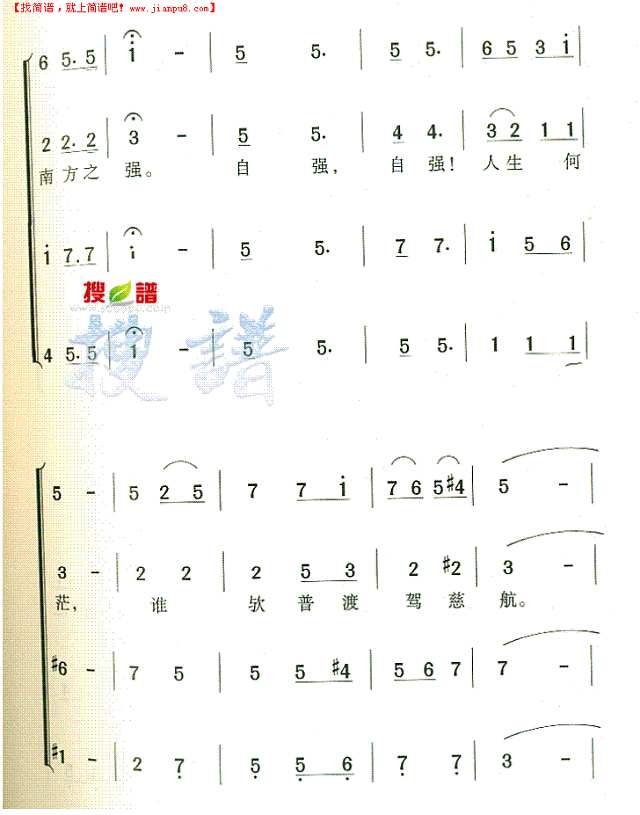 【找简谱，就上简谱吧！www.jianpu8.com】
6 5. 5 | i - | 5 5. | 5 5. | 6 5 3 i |
2 2. 2 | 3 - | 5 5. | 4 4. | 3 2 1 1 |
南方之 强。 自 强， 自 强！ 人生 何
i 7. 7 | i - | 5 5. | 7 7. | i 5 6 |
搜 譜
4 5. 5 | 1 - | 5 5. | 5 5. | 1 1 1 |
搜譜
5 - | 5 2 5 | 7 7 i | 7 6 5 #4 | 5 - |
3 - | 2 2 | 2 5 3 | 2 #2 | 3 - |
茫， 谁 欤 普 渡 驾 慈 航。
#6 - | 7 5 | 5 5 #4 | 5 6 7 | 7 - |
#1 - | 2 7 | 5 5 6 | 7 7 | 3 - |